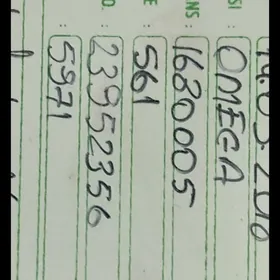 SI : OMEGA
NS : 1680005
E : 561
O. : 23952356
: 5971